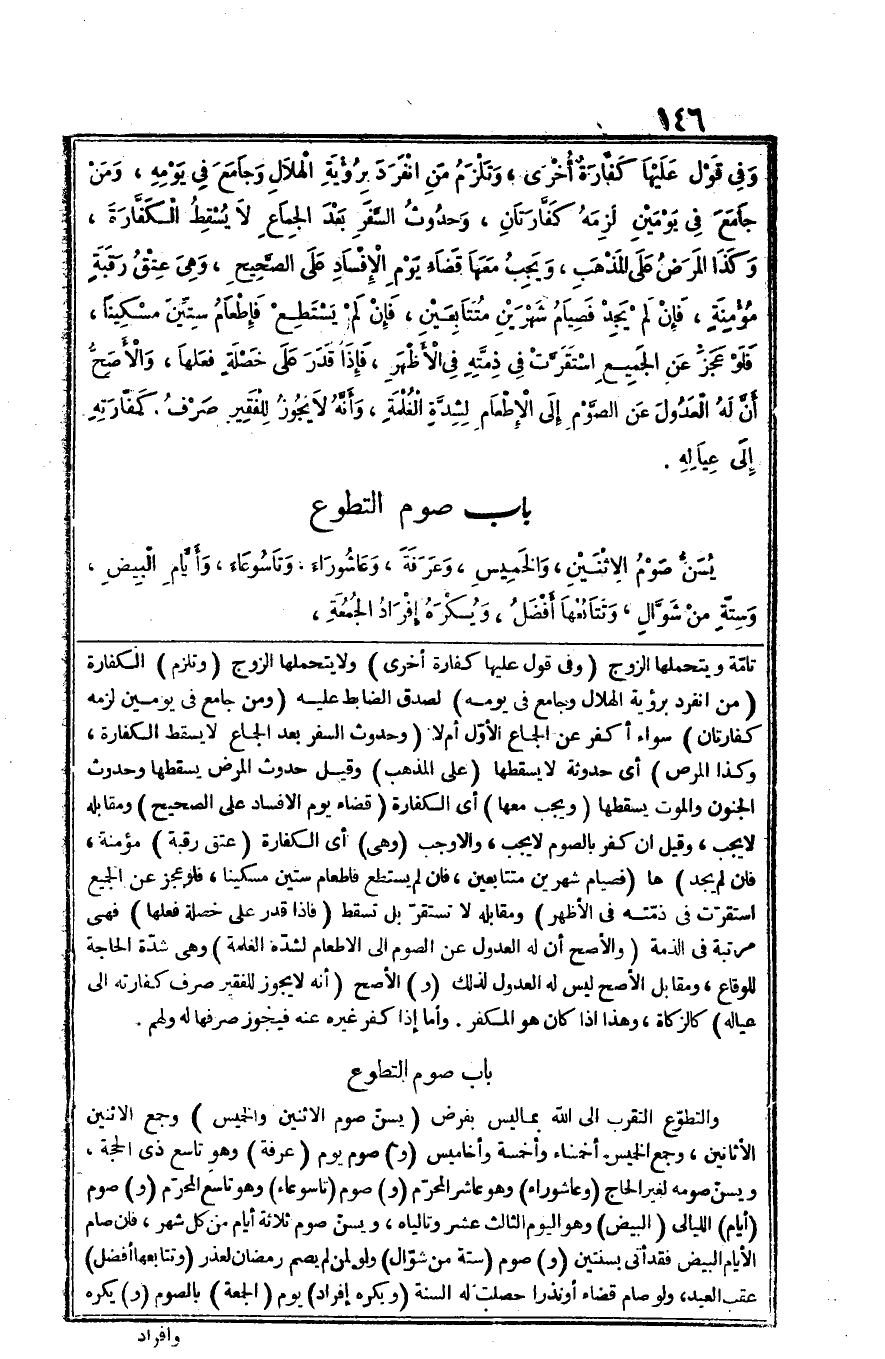 ١٤٦
وَفِي قَوْلٍ عَلَيْهَا كَفَّارَةٌ أُخْرَى ، وَتَلْزَمُ مَنِ انْفَرَدَ بِرُؤْيَةِ الْهِلَالِ وَجَامَعَ فِي يَوْمِهِ ، وَمَنْ
جَامَعَ فِي يَوْمَيْنِ لَزِمَهُ كَفَّارَتَانِ ، وَحُدُوثُ السَّفَرِ بَعْدَ الْجِمَاعِ لَا يُسْقِطُ الْكَفَّارَةَ ،
وَكَذَا الْمَرَضُ عَلَى الْمَذْهَبِ ، وَيَجِبُ مَعَهَا قَضَاءُ يَوْمِ الْإِفْسَادِ عَلَى الصَّحِيحِ ، وَهِيَ عِتْقُ رَقَبَةٍ
مُؤْمِنَةٍ ، فَإِنْ لَمْ يَجِدْ فَصِيَامُ شَهْرَيْنِ مُتَتَابِعَيْنِ ، فَإِنْ لَمْ يَسْتَطِعْ فَإِطْعَامُ سِتِّينَ مِسْكِينًا ،
فَلَوْ عَجَزَ عَنِ الْجَمِيعِ اسْتَقَرَّتْ فِي ذِمَّتِهِ فِي الْأَظْهَرِ ، فَإِذَا قَدَرَ عَلَى خَصْلَةٍ فَعَلَهَا ، وَالْأَصَحُّ
أَنَّ لَهُ الْعُدُولَ عَنِ الصَّوْمِ إِلَى الْإِطْعَامِ لِشِدَّةِ الْغُلْمَةِ ، وَأَنَّهُ لَا يَجُوزُ لِلْفَقِيرِ صَرْفُ كَفَّارَتِهِ
إِلَى عِيَالِهِ .
باب صوم التطوع
يُسَنُّ صَوْمُ الِاثْنَيْنِ ، وَالْخَمِيسِ ، وَعَرَفَةَ ، وَعَاشُورَاءَ ، وَتَاسُوعَاءَ ، وَأَيَّامِ الْبِيضِ ،
وَسِتَّةٍ مِنْ شَوَّالٍ ، وَتَتَابُعُهَا أَفْضَلُ ، وَيُكْرَهُ إِفْرَادُ الْجُمُعَةِ ،
تامّة ويتحملها الزوج ( وفى قول عليها كفارة أخرى ) ولا يتحملها الزوج ( وتلزم ) الكفارة
( من انفرد برؤية الهلال وجامع فى يومه ) لصدق الضابط عليه ( ومن جامع فى يومين لزمه
كفارتان ) سواء أكفر عن الجماع الأوّل أم لا ( وحدوث السفر بعد الجماع لا يسقط الكفارة ،
وكذا المرض ) أى حدوثه لا يسقطها ( على المذهب ) وقيل حدوث المرض يسقطها وحدوث
الجنون والموت يسقطها ( ويجب معها ) أى الكفارة ( قضاء يوم الافساد على الصحيح ) ومقابله
لا يجب ، وقيل ان كفر بالصوم لا يجب ، والا وجب ( وهى ) أى الكفارة ( عتق رقبة ) مؤمنة ،
فان لم يجد ) ها ( فصيام شهرين متتابعين ، فان لم يستطع فاطعام ستين مسكينا ، فلو عجز عن الجميع
استقرّت فى ذمّته فى الأظهر ) ومقابله لا تستقرّ بل تسقط ( فاذا قدر على خصلة فعلها ) فهى
مرتبة فى الذمة ( والأصح أن له العدول عن الصوم الى الاطعام لشدّة الغلمة ) وهى شدّة الحاجة
للوقاع ، ومقابل الأصح ليس له العدول لذلك ( و ) الأصح ( أنه لا يجوز للفقير صرف كفارته الى
عياله ) كالزكاة ، وهذا اذا كان هو المكفر . وأما إذا كفر غيره عنه فيجوز صرفها له ولهم .
باب صوم التطوع
والتطوّع التقرب الى الله بما ليس بفرض ( يسنّ صوم الاثنين والخميس ) وجمع الاثنين
الأثانين ، وجمع الخميس أخمساء وأخمسة وأخاميس ( و ) صوم يوم ( عرفة ) وهو تاسع ذى الحجة ،
ويسنّ صومه لغير الحاج ( وعاشوراء ) وهو عاشر المحرّم ( و ) صوم ( تاسوعاء ) وهو تاسع المحرّم ( و ) صوم
( أيام ) الليالى ( البيض ) وهو اليوم الثالث عشر وتالياه ، ويسنّ صوم ثلاثة أيام من كل شهر ، فان صام
الأيام البيض فقد أتى بسنتين ( و ) صوم ( ستة من شوّال ) ولو لمن لم يصم رمضان لعذر ( وتتابعها أفضل )
عقب العيد ، ولو صام قضاء أو نذرا حصلت له السنة ( ويكره إفراد ) يوم ( الجمعة ) بالصوم ( و ) يكره
وافراد